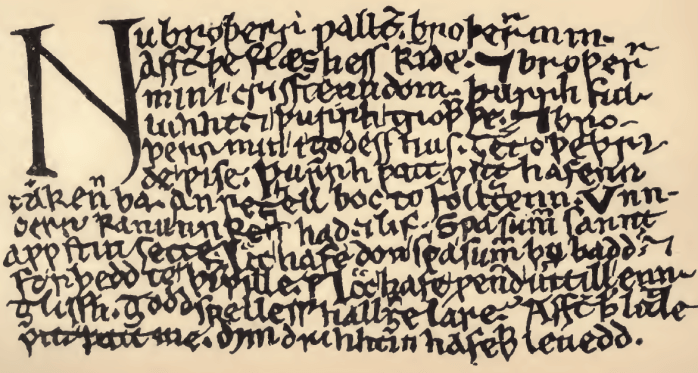 Nu broþerr ƿallt̃. broþer̃ min.
Afft̃ þe flæshess kide. ⁊ broþer̃
min i crisstenndom. þurrh ful-
luhht ⁊ þurrh troƿþe. ⁊ bro-
þerr min i godess hus. ȝet o þe þri-
de ƿise. þurrh þatt ƿitt hafenn
takeñ ba. an reȝhell boc to follȝhenn. Unn-
derr kanunnkess had ⁊ lif. Sƿa sum̃ sannt
aƿƿstin sette. Icc hafe don sƿa sum̃ þu badd. ⁊
forþedd te þin ƿille. Icc hafe ƿennd inntill enn-
glissh. goddspelless hallȝhe lare. Afft̃ þ litle
ƿitt þatt me. min drihhtin hafeþþ lenedd.